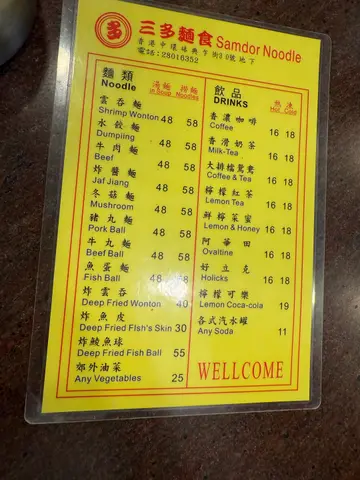 三多麵食 Samdor Noodle
電話:28016352
麵類 湯麵 撈麵
Noodle in Soup Noodles
雲吞麵
Shrimp Wonton 48 58
水餃麵
Dumpiing 48 58
牛肉麵
Beef 48 58
炸醬麵
Jaf Jiang 48 58
冬菇麵
Mushroom 48 58
豬丸麵
Pork Ball 48 58
牛丸麵
Beef Ball 48 58
魚蛋麵
Fish Ball 48 58
炸雲吞
Deep Fried Wonton 40
炸魚皮
Deep Fried FIsh's Skin 30
炸鯪魚球
Deep Fried Fish Ball 55
郊外油菜
Any Vegetables 25
飲品 熱 凍
DRINKS Hot Cold
香濃咖啡
Coffee 16 18
香滑奶茶
Milk-Tea 16 18
大排檔鴛鴦
Coffee & Tea 16 18
檸檬紅茶
Lemon Tea 16 18
鮮檸菜蜜
Lemon & Honey 16 18
阿華田
Ovaltine 16 18
好立克
Holicks 16 18
檸檬可樂
Lemon Coca-coba 19
各式汽水罐
Any Soda 11
WELLCOME